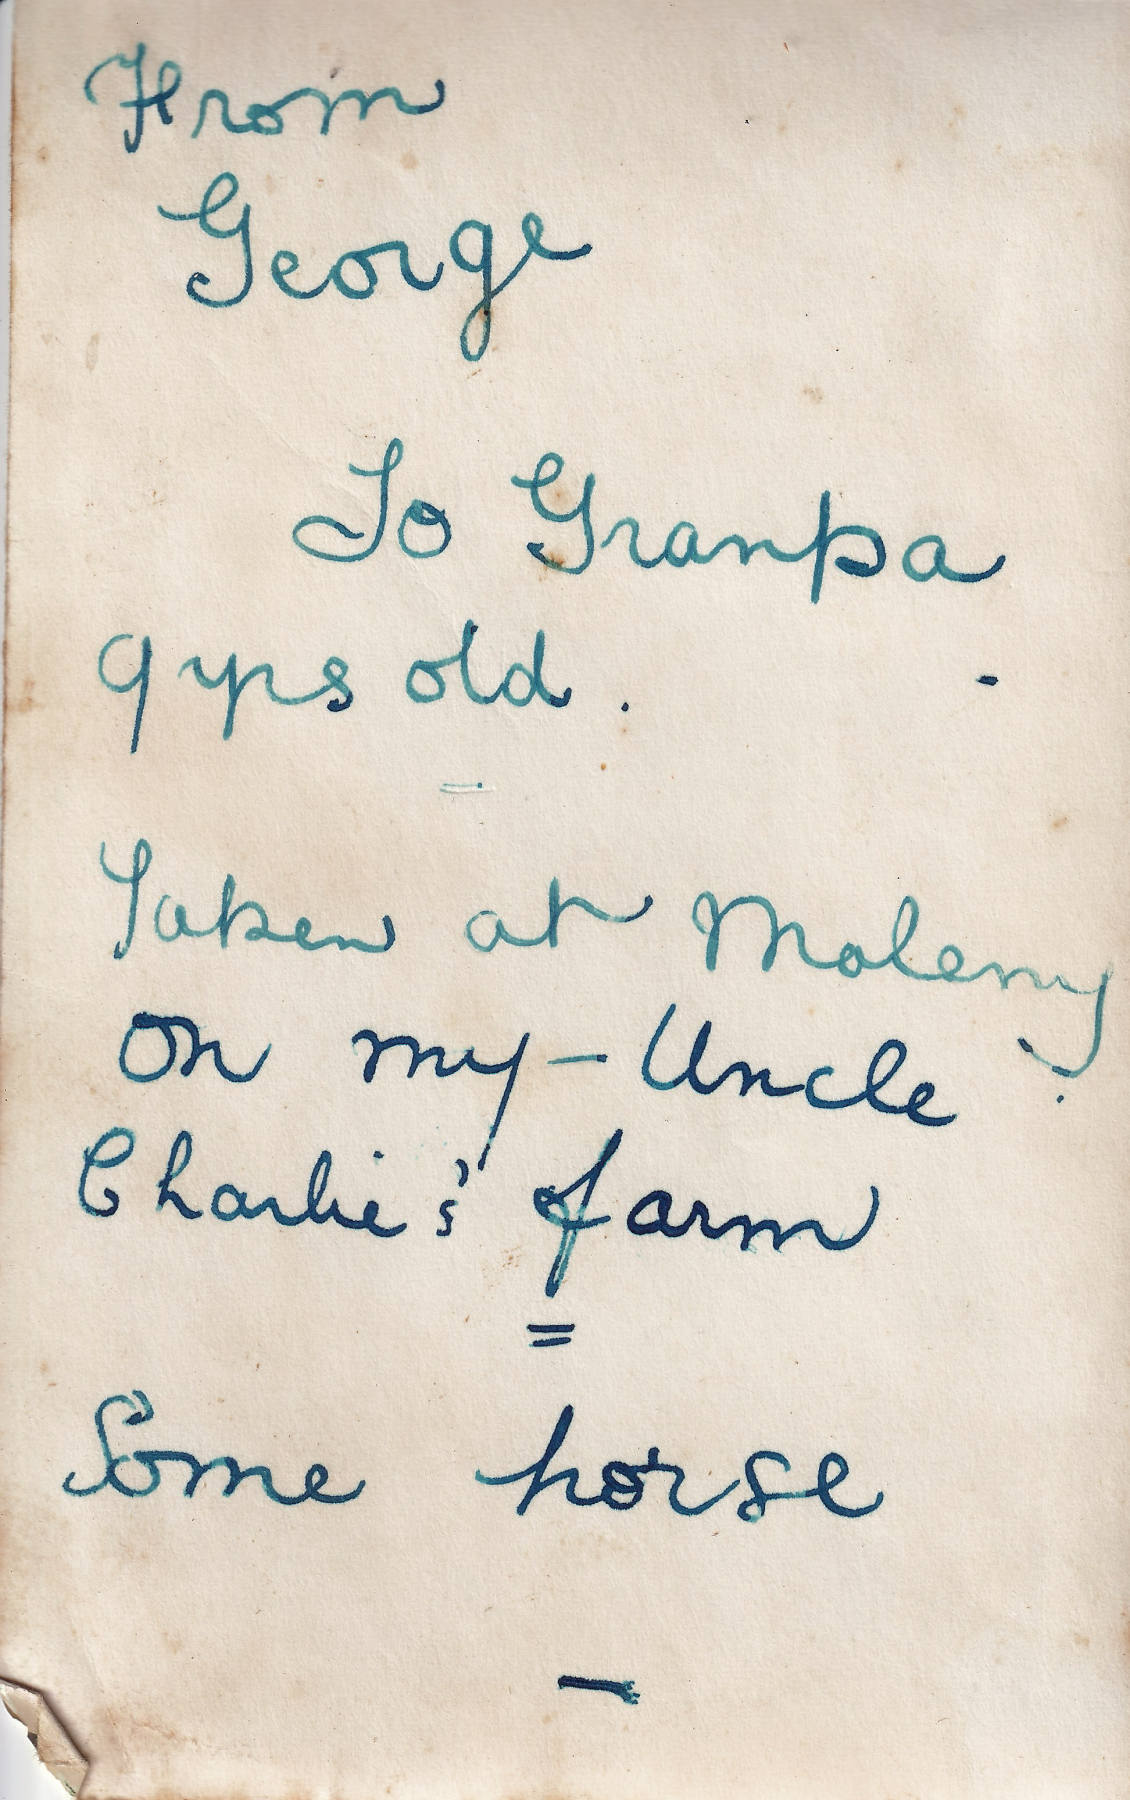 From
George
To Granpa
9 yrs old.
Taken at Maleny
on my - Uncle
Charlie's farm
=
Some horse